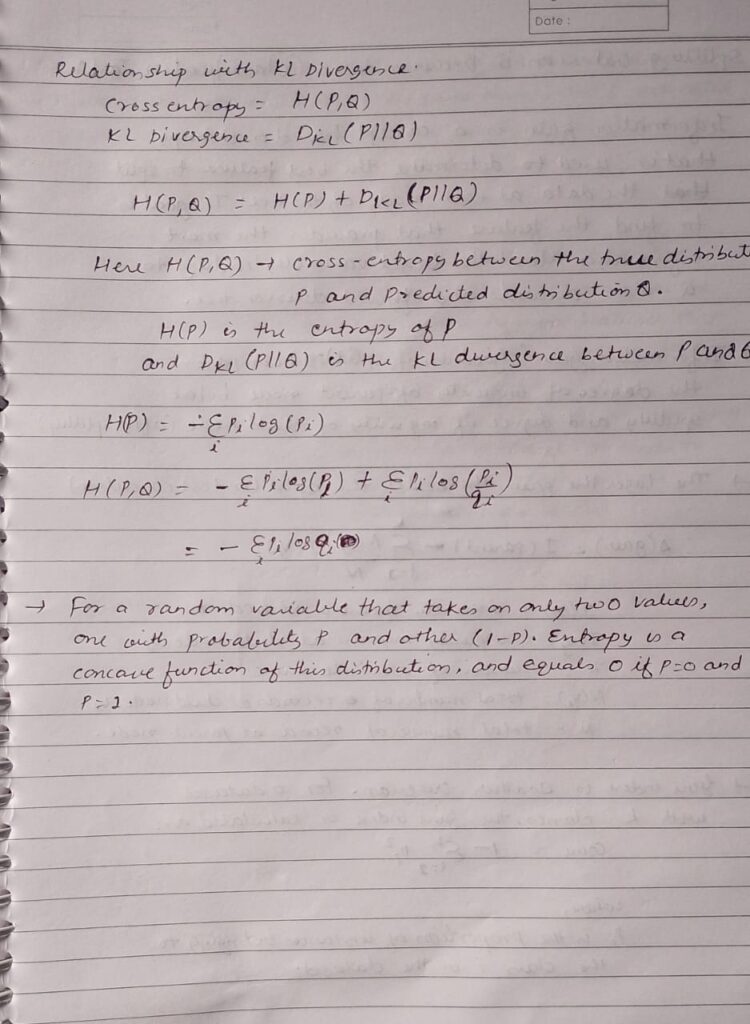 Date :
Relationship with KL Divergence.
Cross entropy = H(P,Q)
KL Divergence = DKL (P||Q)
H(P,Q) = H(P) + DKL (P||Q)
Here H(P,Q) → cross-entropy between the true distribut
P and Predicted distribution Q.
H(P) is the entropy of P
and DKL (P||Q) is the KL divergence between P and Q
H(P) = - Σi Pi log (Pi)
H(P,Q) = - Σi Pi log(Pi) + Σi Pi log (Pi/qi)
= - Σi Pi log qi
→ For a random variable that takes on only two values,
one with probability P and other (1-P). Entropy is a
concave function of this distribution, and equals 0 if P=0 and
P=1.